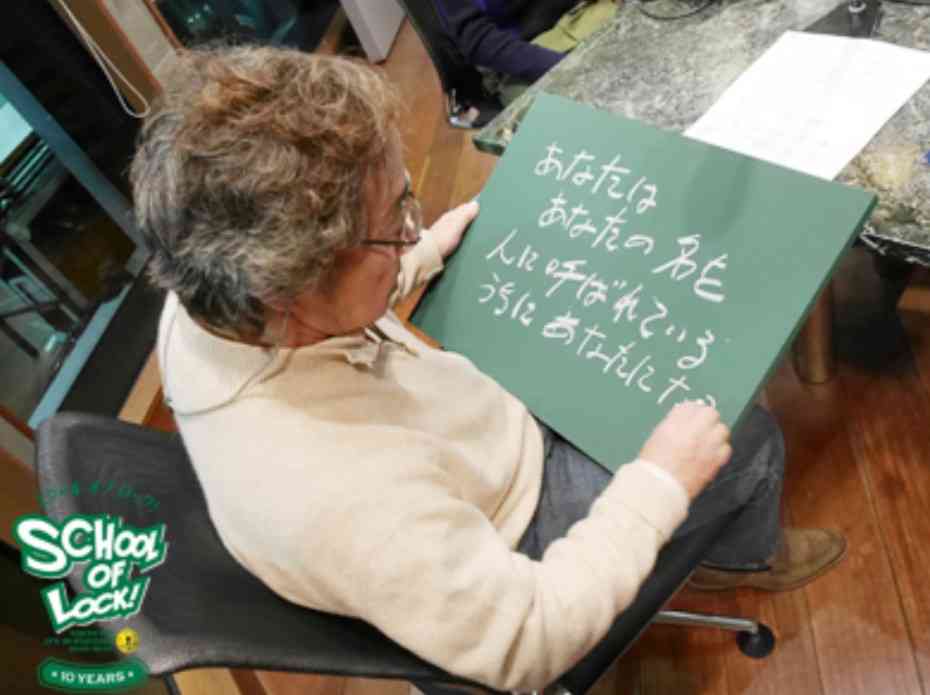 あなたは
あなたの名を
人に呼ばれている
うちにあなたに
SCHOOL
OF
LOCK!
10 YEARS